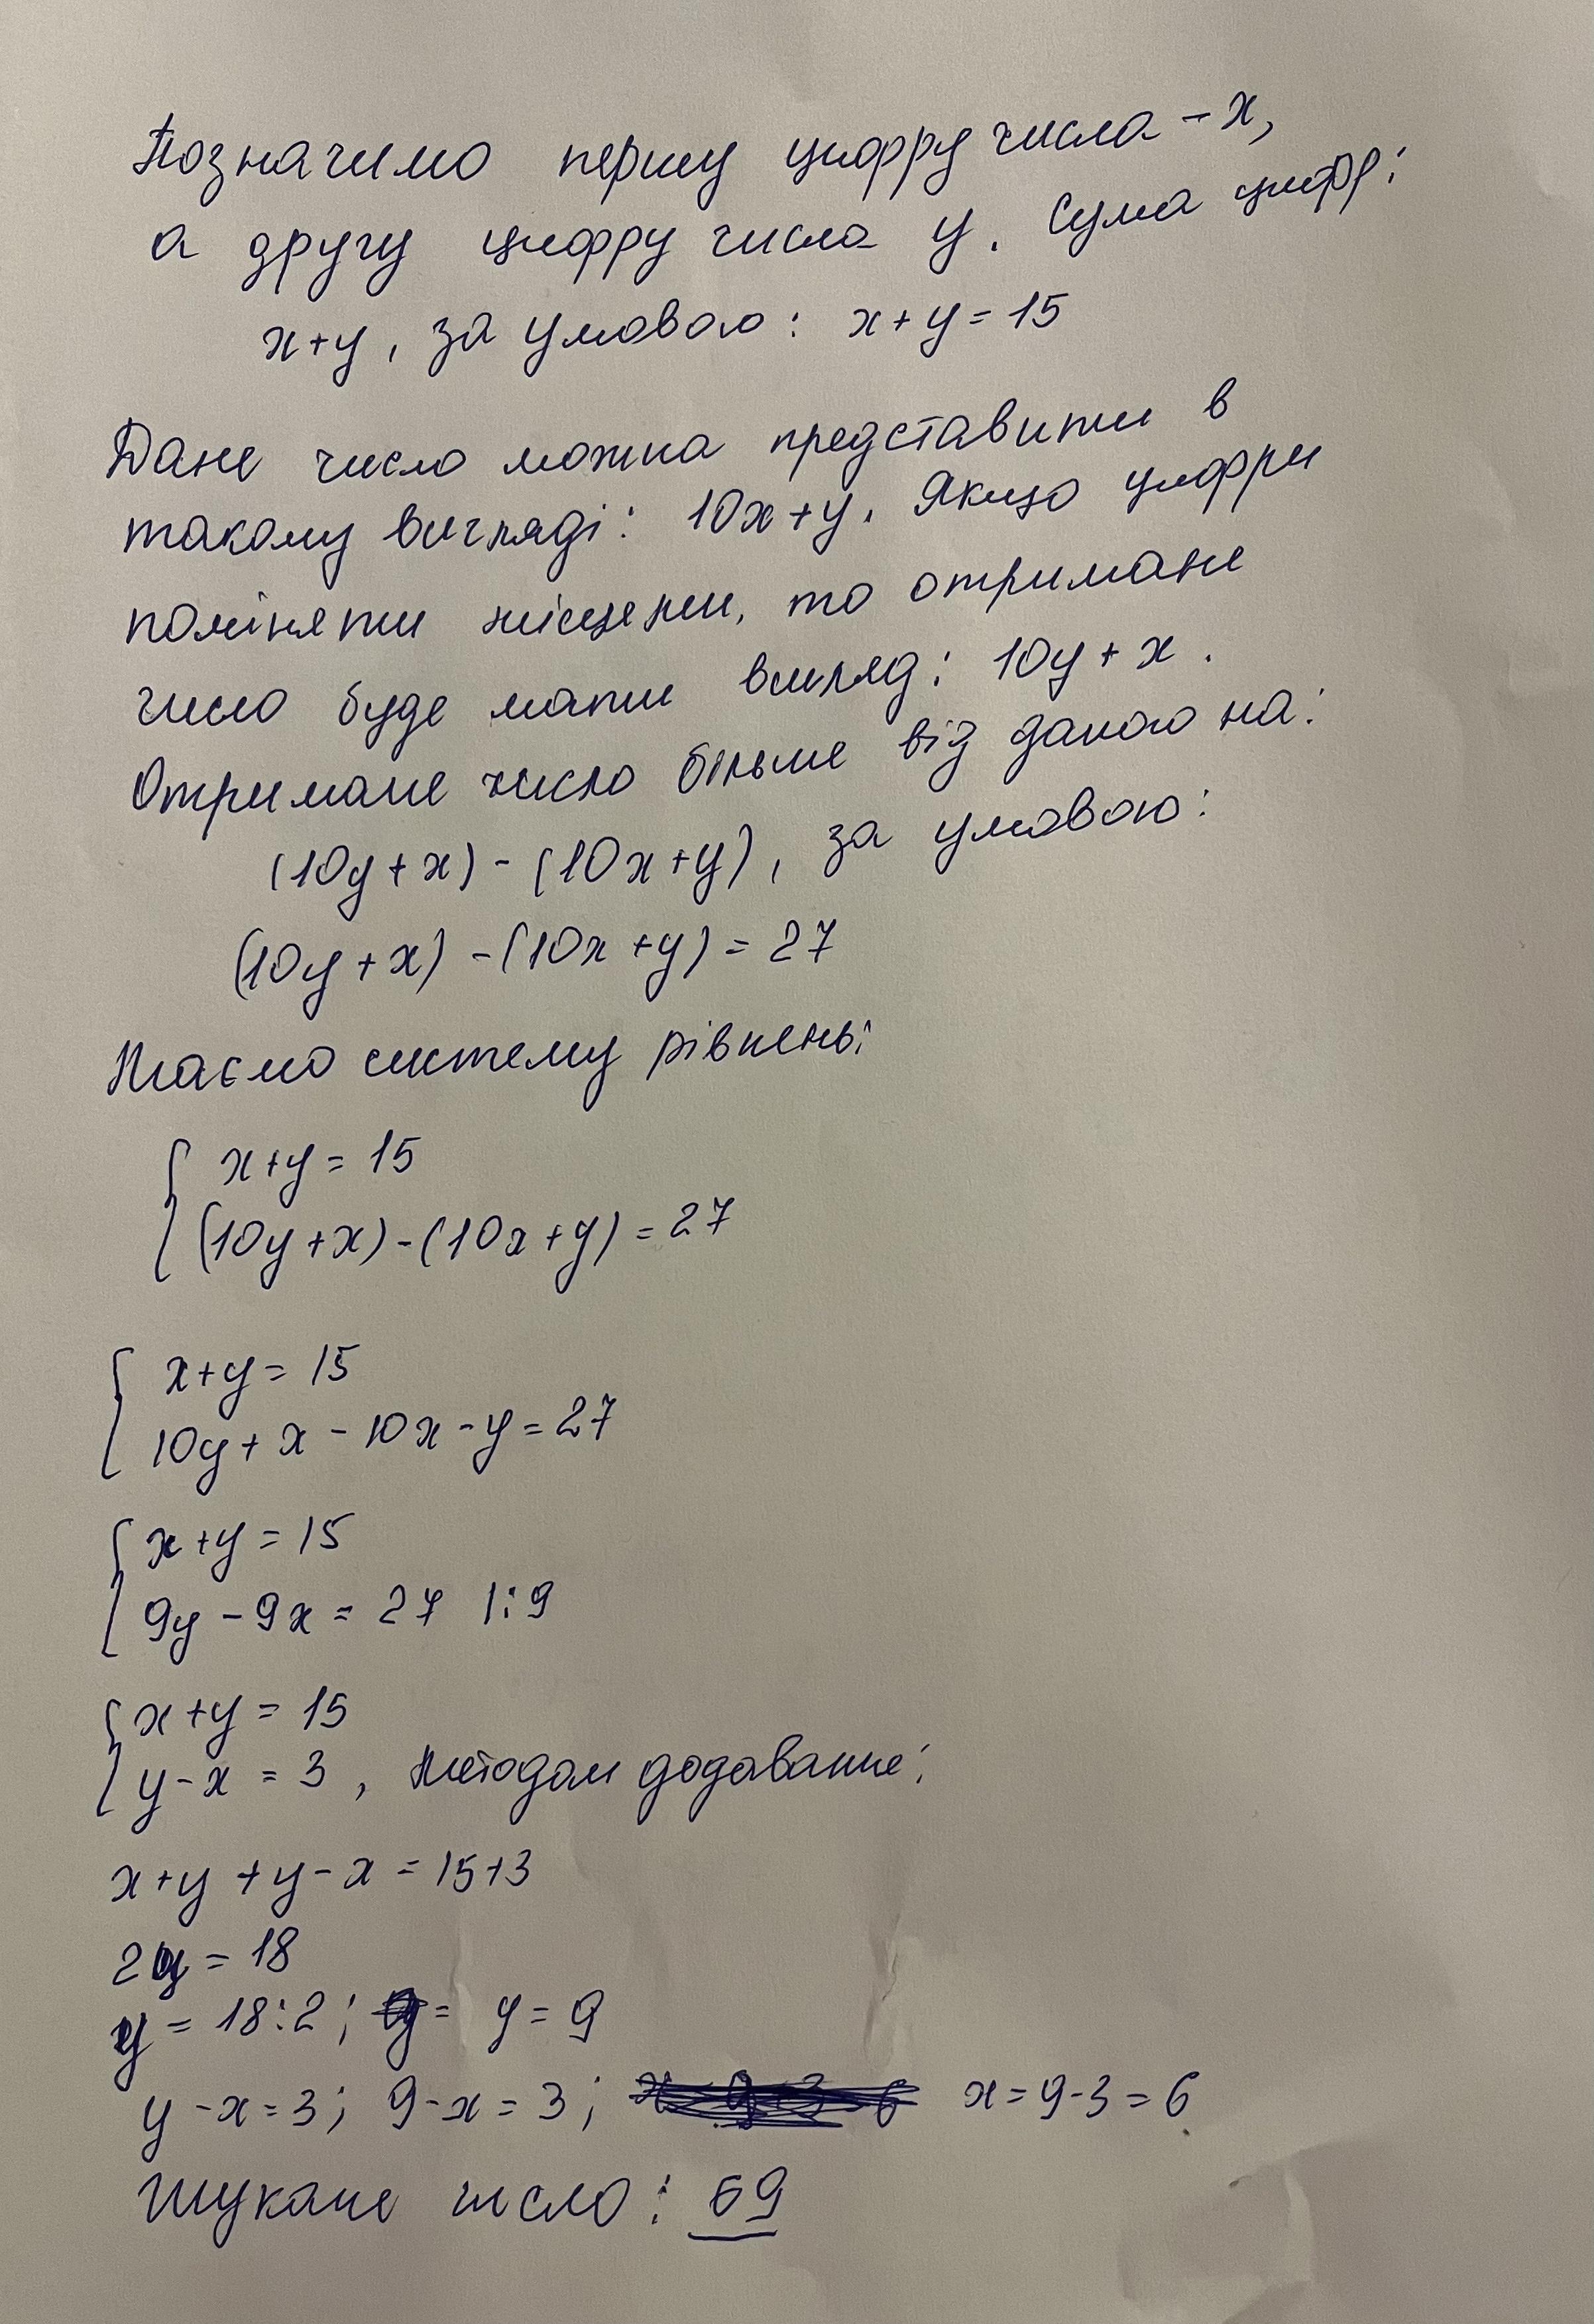 Позначимо першу цифру числа - x,
а другу цифру числа y. Сума цифр:
x+y, за умовою: x+y=15
Дане число можна представити в
такому вигляді: 10x+y. Якщо цифри
поміняти місцями, то отримане
число буде мати вигляд: 10y+x.
Отримане число більше від даного на:
(10y+x)-(10x+y), за умовою:
(10y+x)-(10x+y)=27
Маємо систему рівнень:
{ x+y=15
(10y+x)-(10x+y)=27
{ x+y=15
10y+x-10x-y=27
{ x+y=15
9y-9x=27 |:9
{ x+y=15
y-x=3, методом додавання:
x+y+y-x=15+3
2y=18
y=18:2; y=9
y-x=3; 9-x=3; x=9-3=6
Шукане число: 69